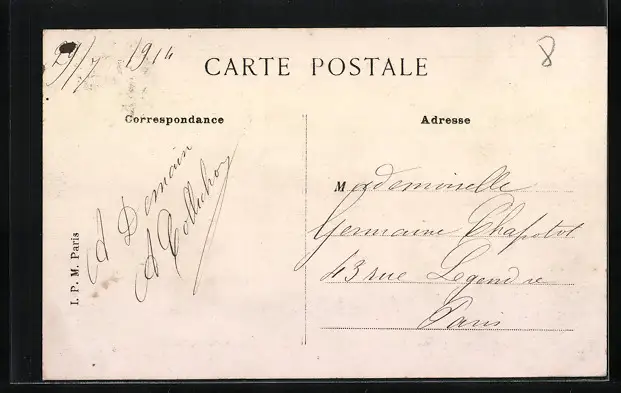 29/7 1914
8
CARTE POSTALE
Correspondance
Adresse
A Demain
A
I. P. M. Paris
Mademoiselle
Germaine Chapotot
43 rue Legendre
Paris